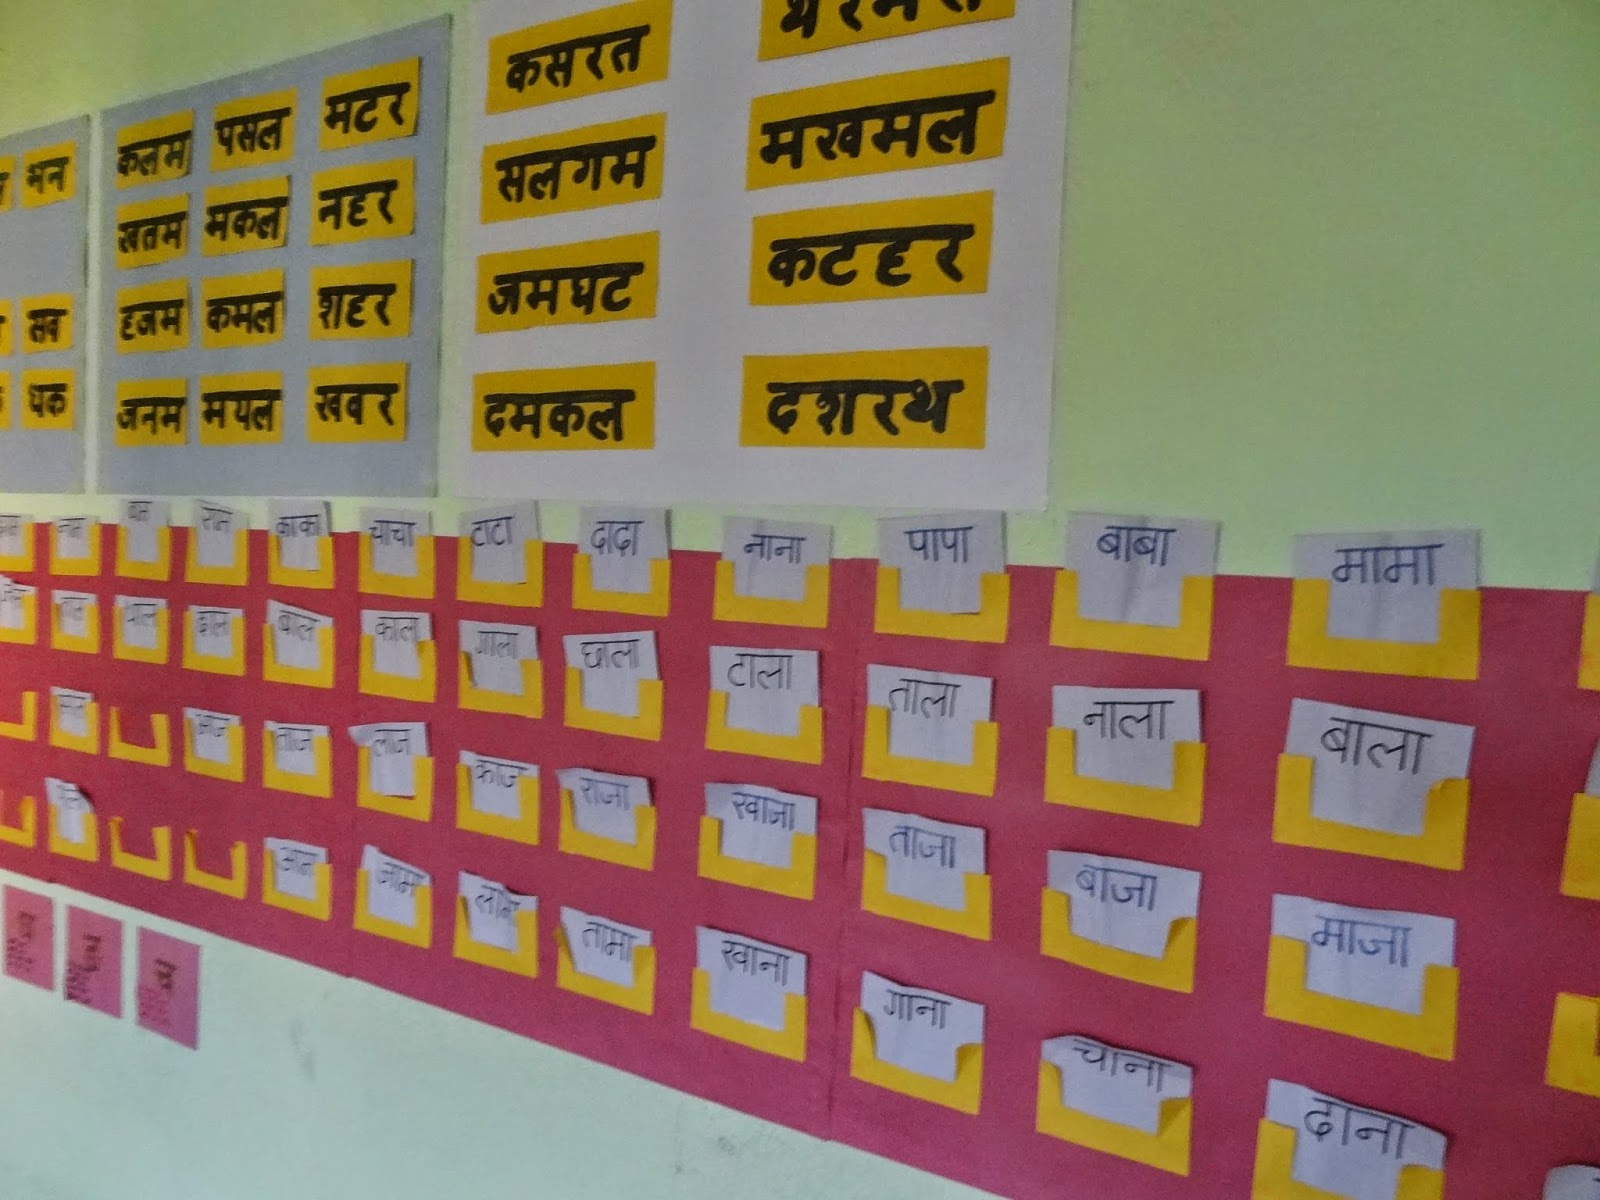 भन
सब
धक
कलम पसल मटर
खतम मकल नहर
हजम कमल शहर
जनम मयल खबर
कसरत
सलगम मखमल
जमघट कटहर
दमकल दशरथ
काका चाचा टाटा दादा नाना पापा बाबा मामा
बाल काल गाला छाला टाला ताला नाला बाला
आज ताज लाज काज राजा खाजा ताजा बाजा माजा
आन जामा तामा खाना गाना चाना दाना